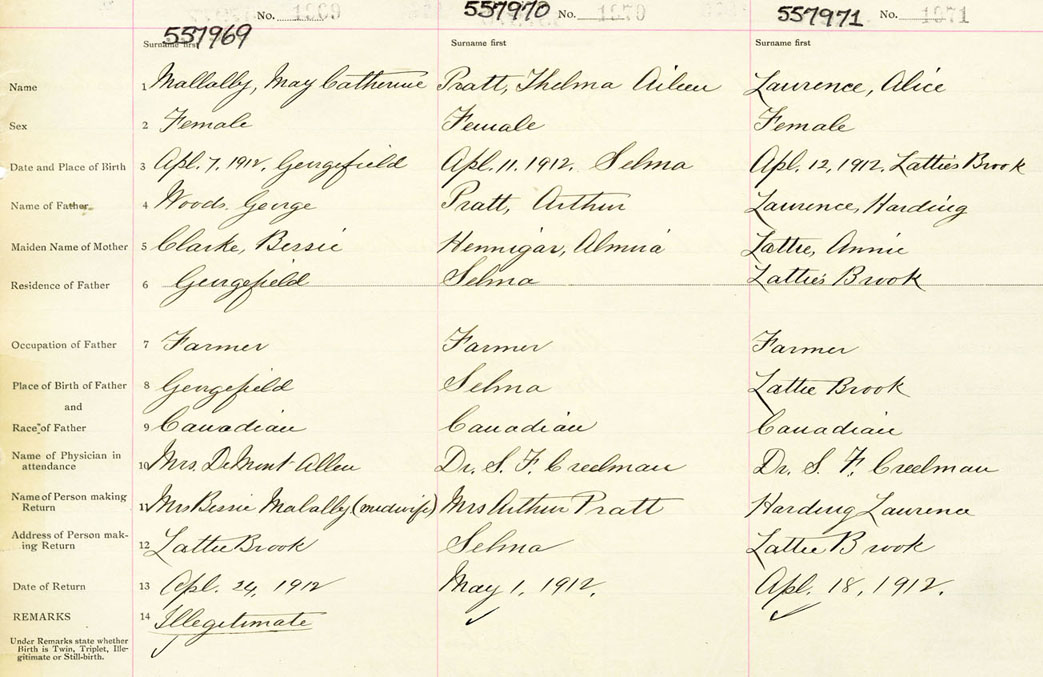 No. 1969 557970 No. 1970 557971 No. 1971
557969
Surname first Surname first Surname first
Name 1 Mallally, May Catherine Pratt, Thelma Aileen Laurence, Alice
Sex 2 Female Female Female
Date and Place of Birth 3 Apl. 7, 1912, Georgefield Apl. 11. 1912. Selma Apl. 12, 1912, Latties Brook
Name of Father 4 Woods. George Pratt, Arthur Laurence, Harding
Maiden Name of Mother 5 Clarke, Bessie Hennigar, Almira Lattie, Annie
Residence of Father 6 Georgefield Selma Lattie's Brook
Occupation of Father 7 Farmer Farmer Farmer
Place of Birth of Father 8 Georgefield Selma Lattie Brook
and
Race of Father 9 Canadian Canadian Canadian
Name of Physician in
attendance 10 Mrs. DeMont Allen Dr. S. F. Creelman Dr. S. F. Creelman
Name of Person making
Return 11 Mrs Bessie Malally (midwife) Mrs Arthur Pratt Harding Laurence
Address of Person mak-
ing Return 12 Lattie Brook Selma Lattie Brook
Date of Return 13 Apl. 24, 1912 May 1, 1912. Apl. 18, 1912.
REMARKS 14 Illegitimate
Under Remarks state whether
Birth is Twin, Triplet, Ille-
gitimate or Still-birth.